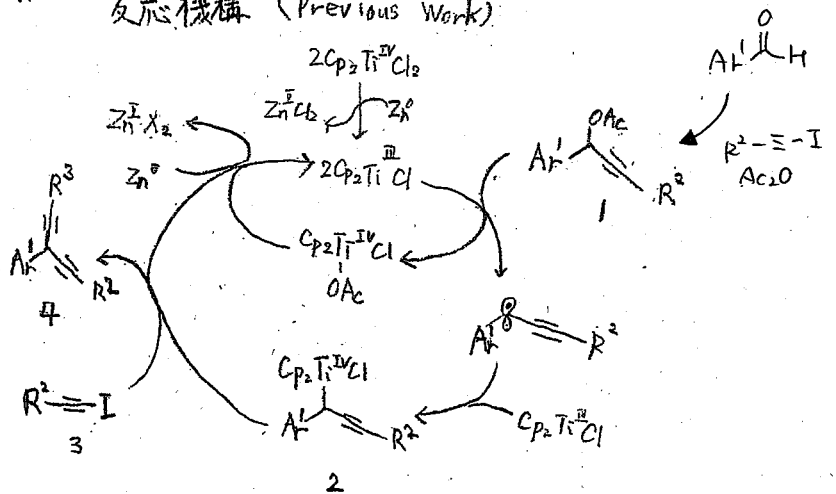 反応機構 (Previous Work)
2Cp₂Ti^IV Cl₂
Zn^II Cl₂
Zn⁰
Zn^II X₂
Zn⁰
2Cp₂Ti^III Cl
Cp₂Ti^IV Cl
OAc
Ar¹
O
H
R²-≡-I
Ac₂O
OAc
Ar¹
R²
1
R³
Ar¹
R²
4
Ar¹
R²
Cp₂Ti^III Cl
Cp₂Ti^IV Cl
Ar¹
R²
2
R²≡I
3